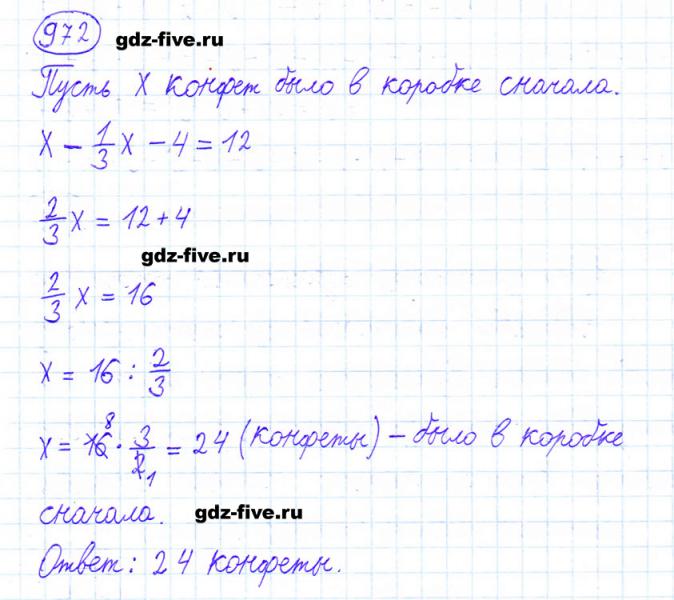 972 gdz-five.ru
Пусть X конфет было в коробке сначала.
X - 1/3 X - 4 = 12
2/3 X = 12 + 4
gdz-five.ru
2/3 X = 16
X = 16 : 2/3
X = 16 8 · 3/2 1 = 24 (конфеты) - было в коробке
сначала. gdz-five.ru
Ответ: 24 конфеты.